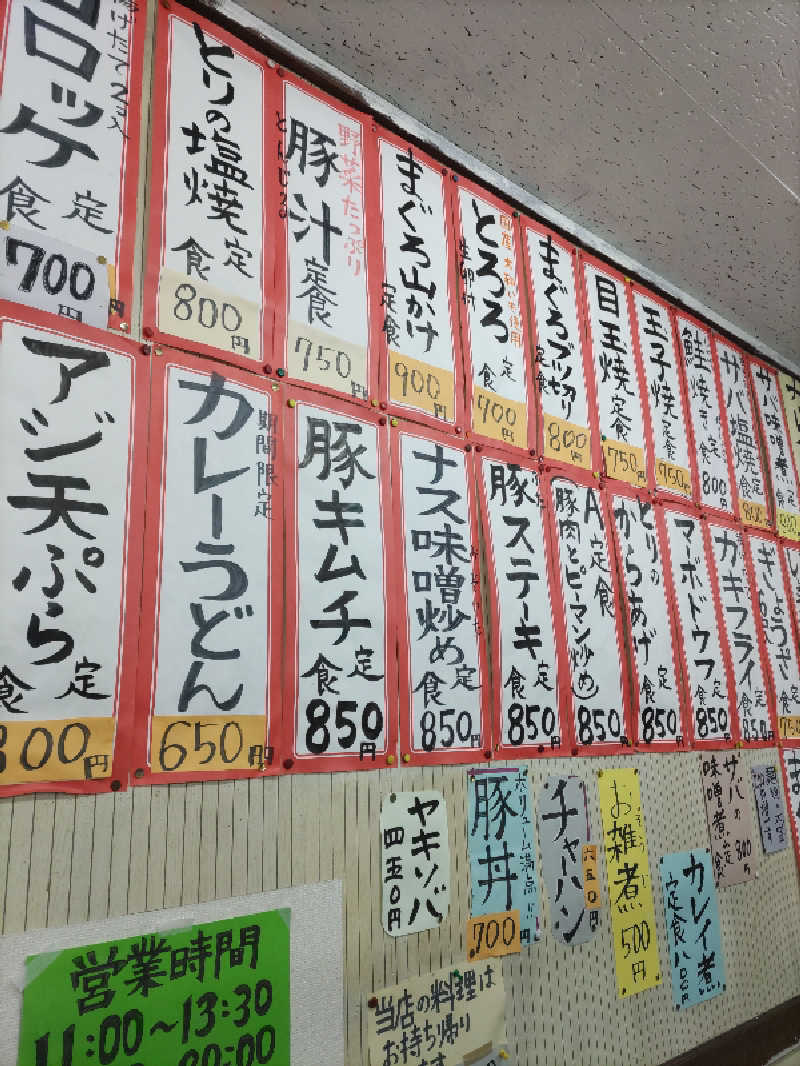 コロッケ
定食
700
円
とりの塩焼
定食
800円
野菜たっぷり
豚汁
とんじる
定食
750円
まぐろ山かけ
定食
900円
とろろ
生卵付
定食
700円
まぐろブツ切り
定食
800円
目玉焼定食
750円
玉子焼定食
750円
鮭焼き定食
800円
サバ塩焼定食
800円
サバ味噌煮
定食
800円
アジ天ぷら
定食
800円
期間限定
カレーうどん
650円
豚キムチ
定食
850円
ナス味噌炒め
定食
850円
豚ステーキ
定食
850円
A定食
豚肉とピーマン炒め
850円
とりの
からあげ
定食
850円
マーボドウフ
定食
850円
カキフライ
定食
850円
ぎょうざ
定食
750
ヤキソバ
四五〇円
ボリューム満点!!
豚丼
700円
チャーハン
六五〇円
お雑煮
500円
カレイ煮
定食八〇〇円
サバの
味噌煮定食
800円
営業時間
11:00~13:30
当店の料理は
お持ち帰り